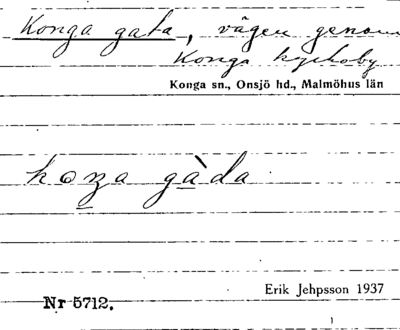 Konga gata, vägen genom
Konga kyrkoby
Konga sn., Onsjö hd., Malmöhus län
koza gàda
Erik Jehpsson 1937
Nr 5712.